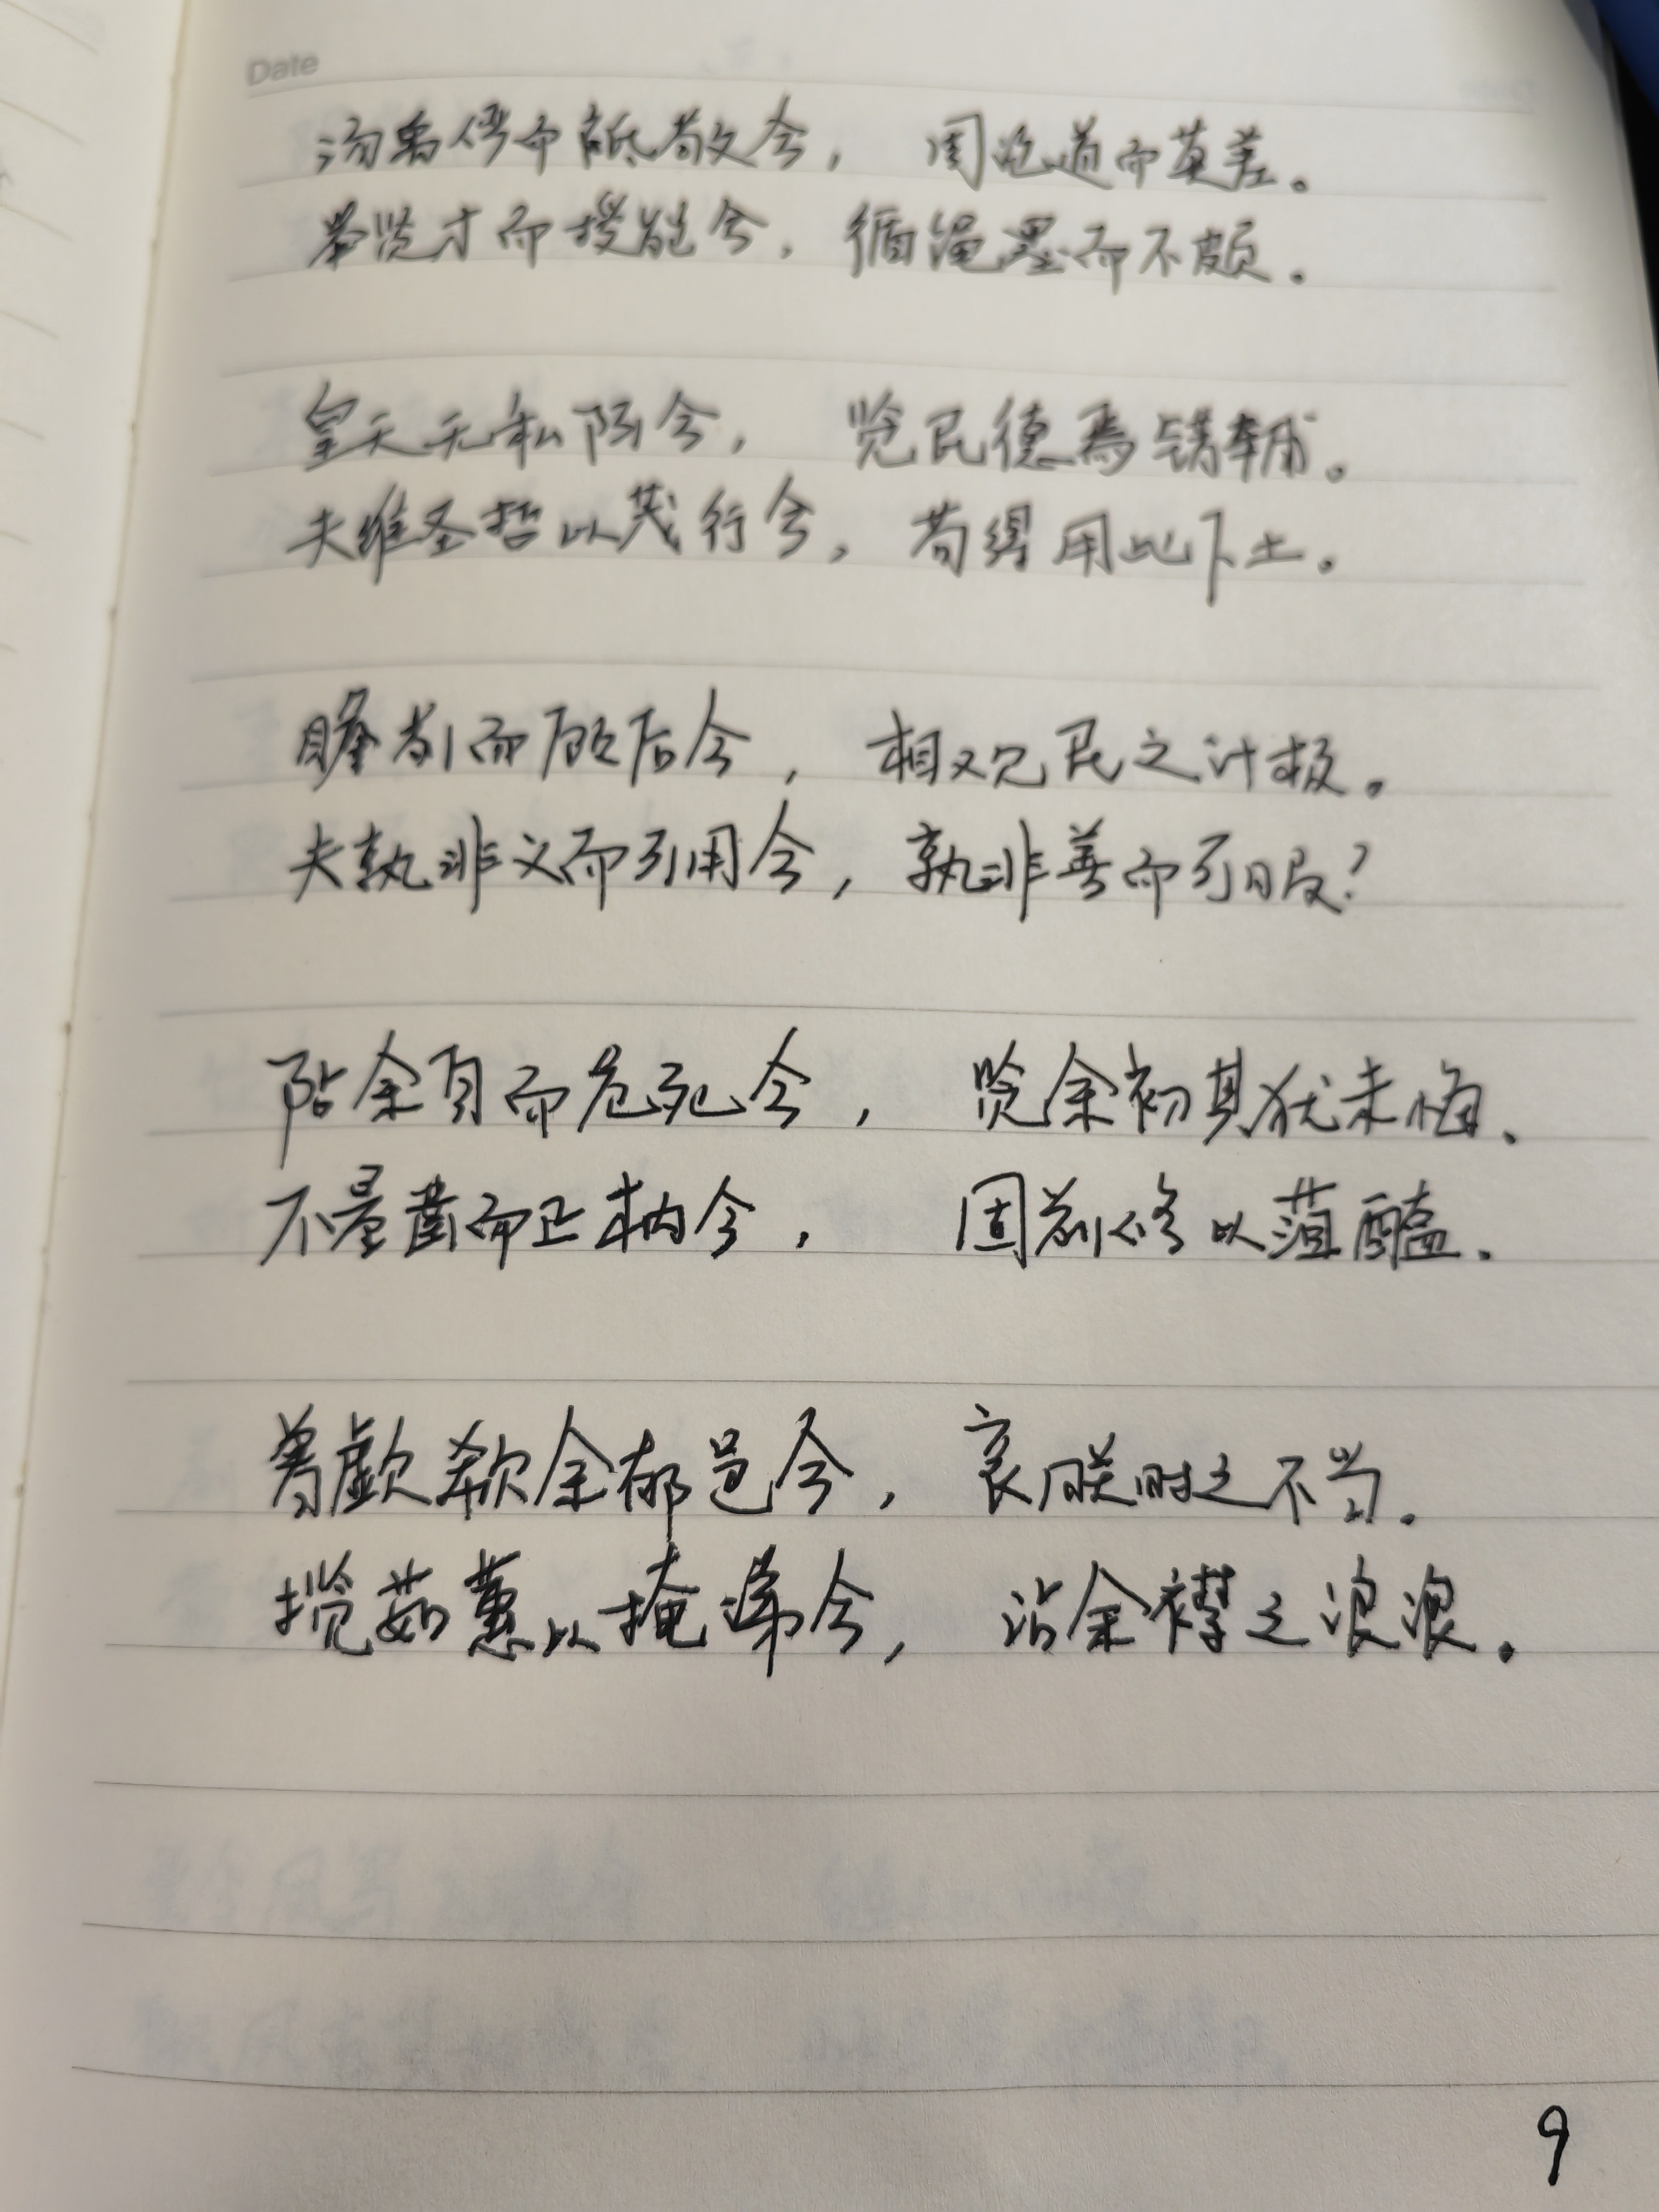 Date
汤禹俨而祗敬兮，周论道而莫差。
举贤才而授能兮，循绳墨而不颇。
皇天无私阿兮，览民德焉错辅。
夫维圣哲以茂行兮，苟得用此下土。
瞻前而顾后兮，相观民之计极。
夫孰非义而可用兮，孰非善而可服？
阽余身而危死兮，览余初其犹未悔。
不量凿而正枘兮，固前修以菹醢。
曾歔欷余郁邑兮，哀朕时之不当。
揽茹蕙以掩涕兮，沾余襟之浪浪。
9